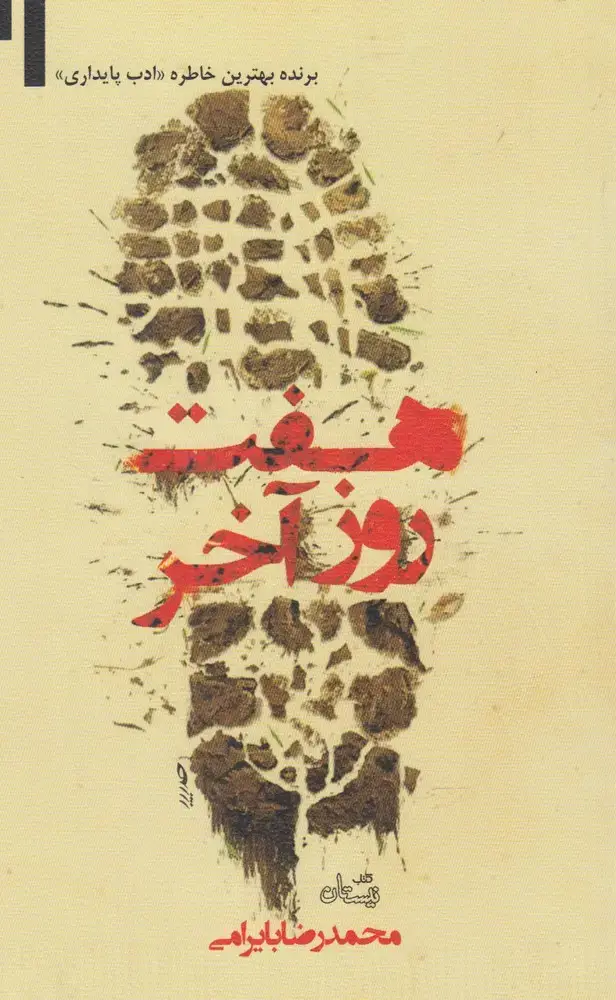 برنده بهترین خاطره «ادب پایداری»
هفت
روز آخر
کتاب
نیستان
محمدرضا بایرامی